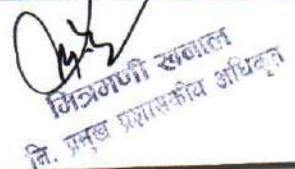 मित्रमणी खनाल
नि. प्रमुख प्रशासकीय अधिकृत